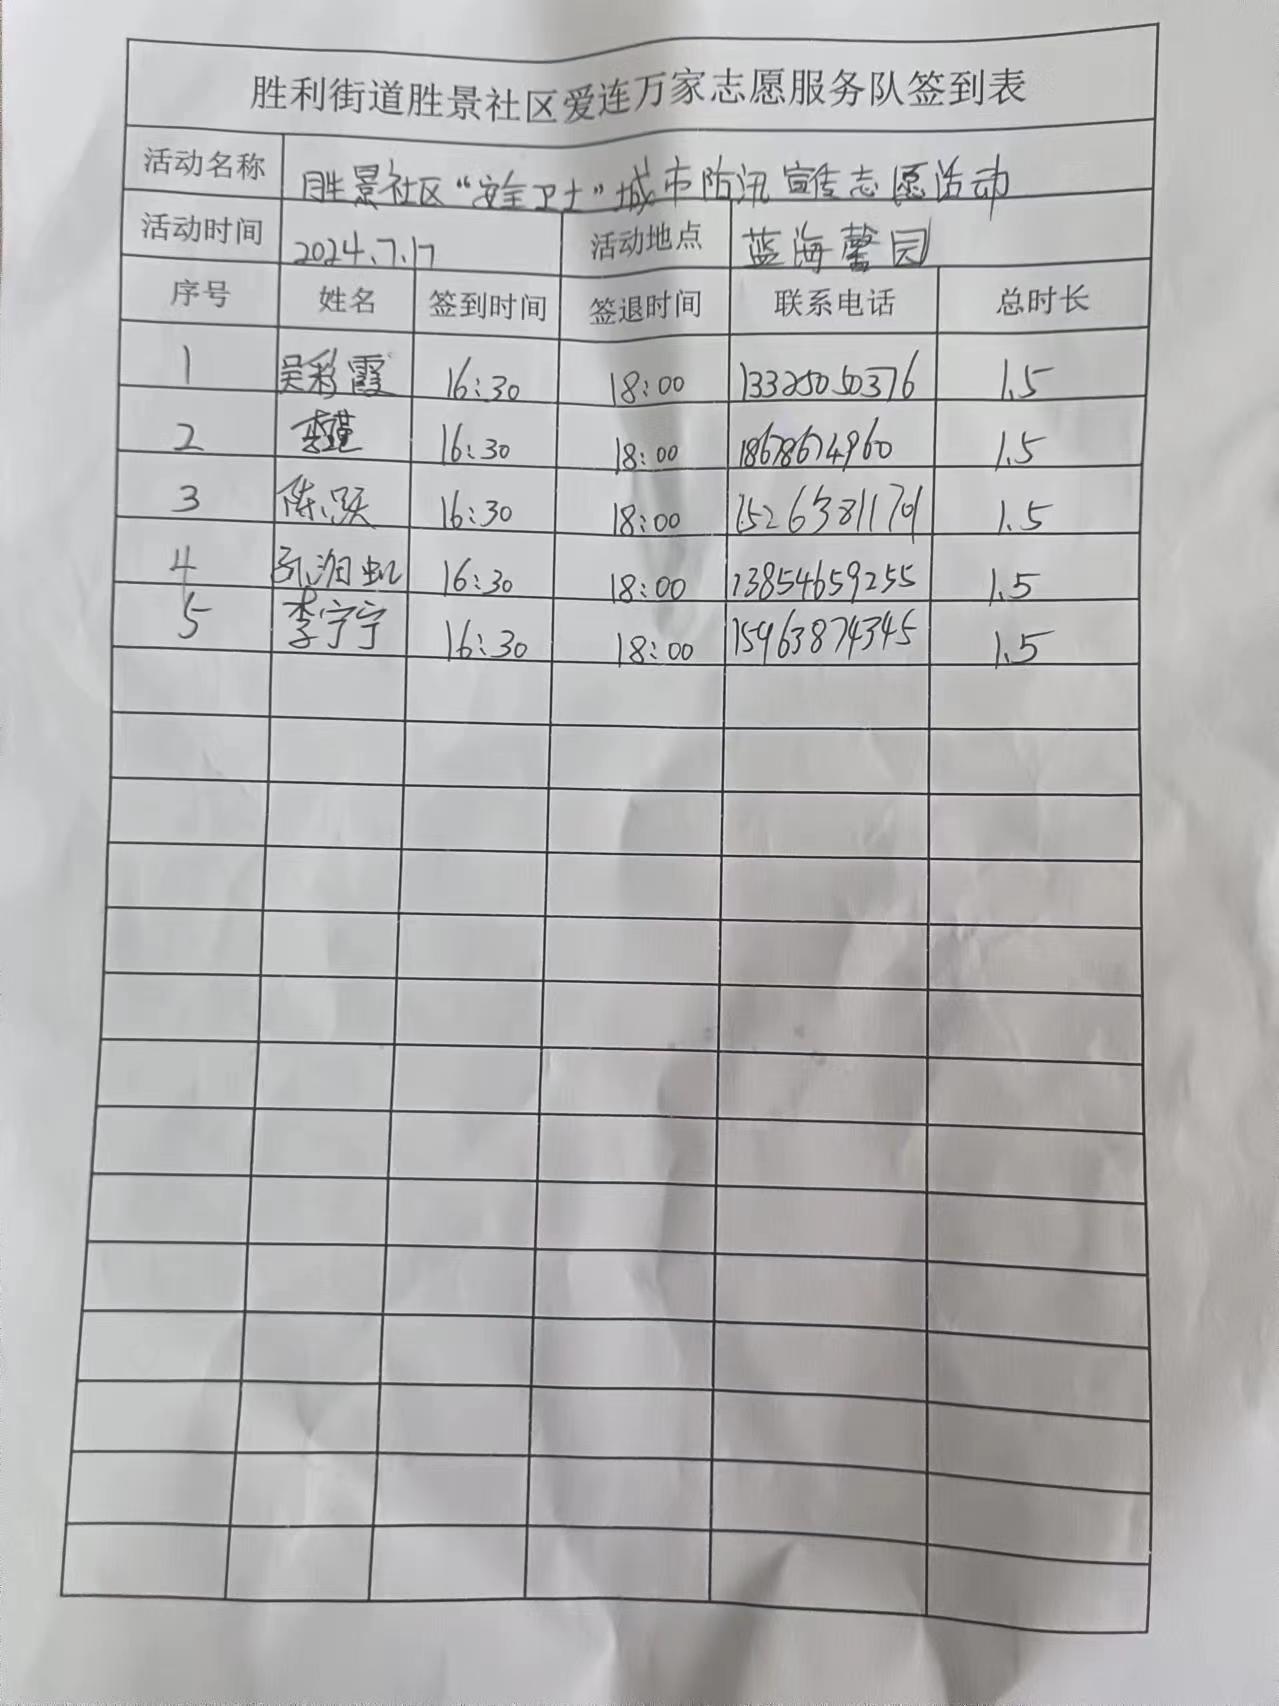 胜利街道胜景社区爱连万家志愿服务队签到表
活动名称 胜景社区“安全卫士”城市防汛宣传志愿活动
活动时间 2024.7.17 活动地点 蓝海馨园
序号 姓名 签到时间 签退时间 联系电话 总时长
1 吴彩霞 16:30 18:00 13325050376 1.5
2 16:30 18:00 18678674960 1.5
3 陈 16:30 18:00 1.5
4 16:30 18:00 13854659255 1.5
5 李宁宁 16:30 18:00 15963874345 1.5